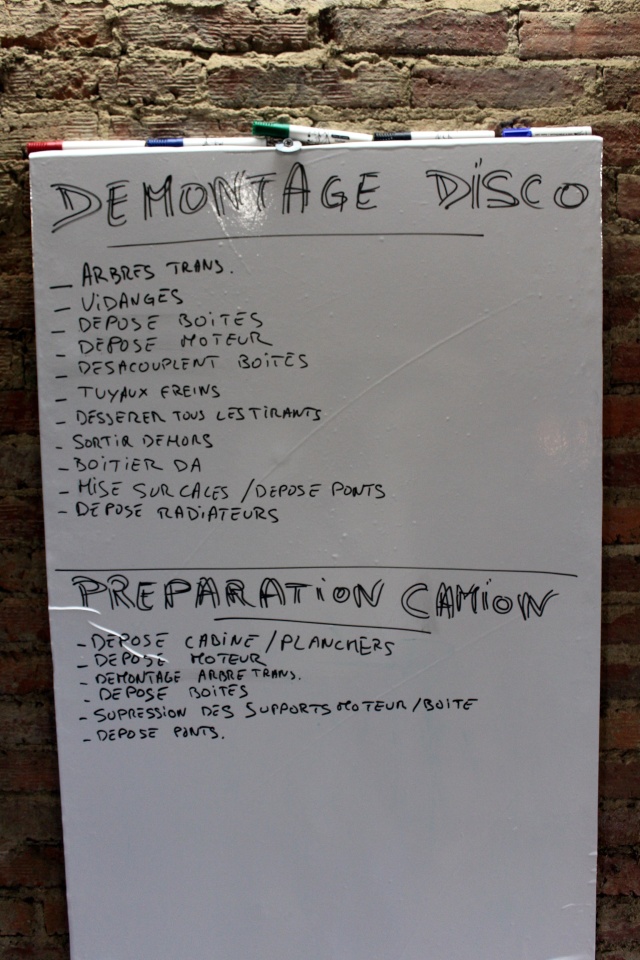 DEMONTAGE DISCO
_ ARBRES TRANS.
_ VIDANGES
_ DEPOSE BOITES
_ DEPOSE MOTEUR
_ DESACOUPLENT BOITES
_ TUYAUX FREINS
- DESSERER TOUS LES TIRANTS
- SORTIR DEHORS
- BOITIER DA
- MISE SUR CALES / DEPOSE PONTS
- DEPOSE RADIATEURS
PREPARATION CAMION
- DEPOSE CABINE / PLANCHERS
- DEPOSE MOTEUR
- DEMONTAGE ARBRE TRANS.
- DEPOSE BOITES
- SUPRESSION DES SUPPORTS MOTEUR / BOITE
- DEPOSE PONTS.